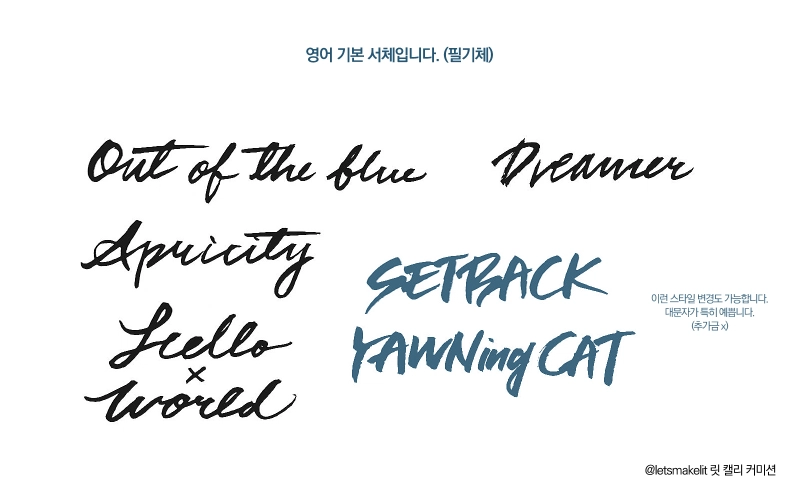 영어 기본 서체입니다. (필기체)
Out of the blue
Dreamer
Apricity
Hello
×
World
SETBACK
YAWNing CAT
이런 스타일 변경도 가능합니다.
대문자가 특히 예쁩니다.
(추가금 x)
@letsmakelit 릿 캘리 커미션